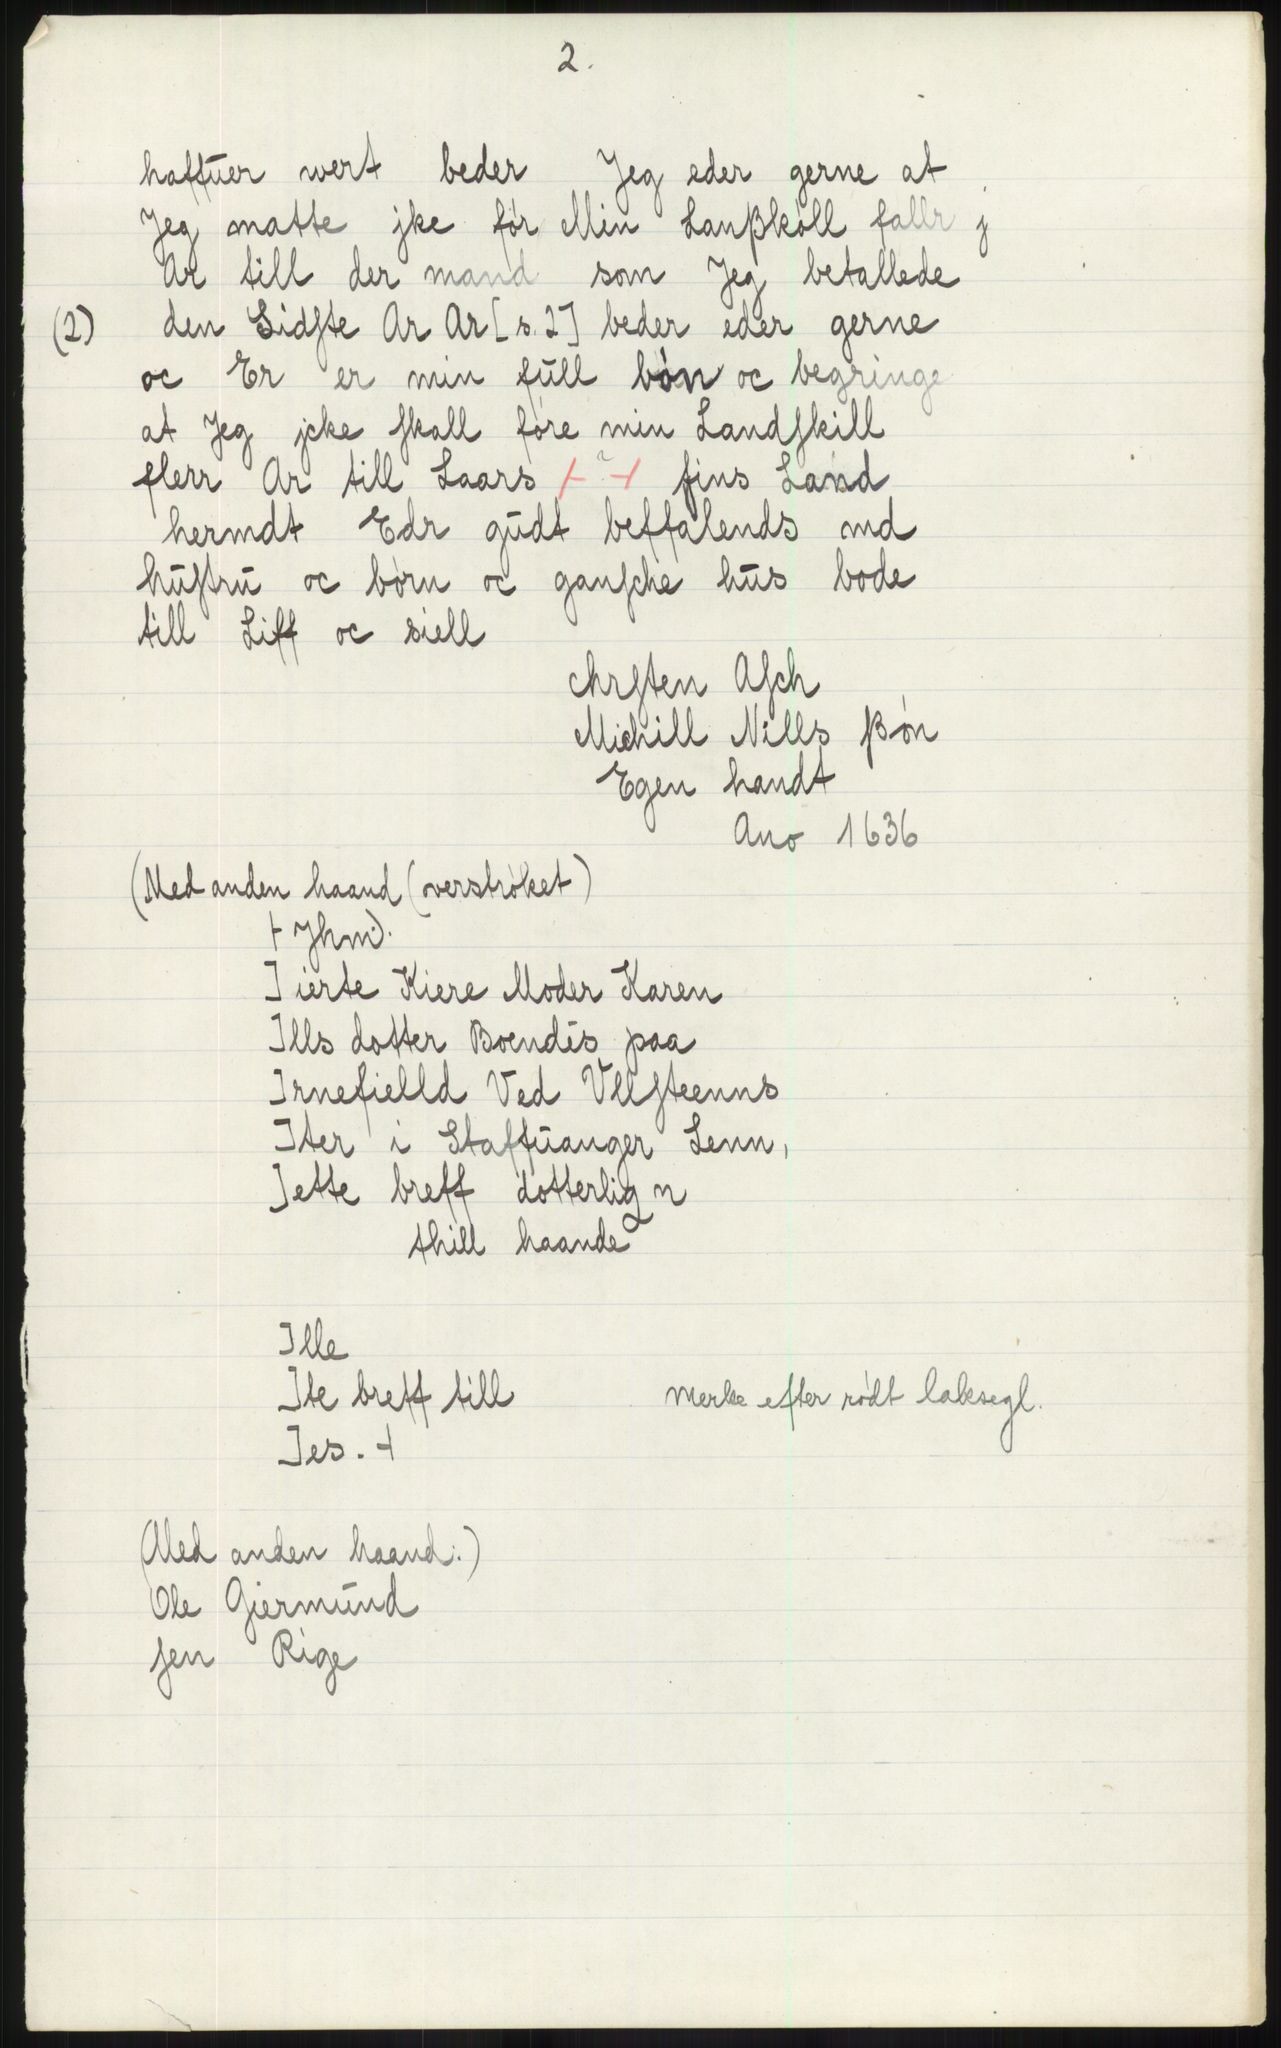 2.
haffuer wert beder Jeg eder gerne at
Jeg matte jke før Min Lanβkøll fallr j
Ar till der mand som Jeg betallede
(2) den Sidste Ar Ar [s. 2] beder eder gerne
oc Er er min full bøn oc begringe
at Jeg jcke skall føre min Landskill
flerr Ar till Laars fins Land
hermdt Edr gudt beffalends md
hustru oc børn oc gansche hus bode
till Liff oc siell
chrsten Asch
Michill Nills βøn
Egen handt
Ano 1636
(Med anden haand (overstrøket)
+ Jhm).
] ierte Kiere Moder Karen
]lls dotter Boendis paa
]rnefielld Ved Vllsteenns
]ter i Staffuanger Lenn,
]ette breff dotterlig n
thill haande
]lle
]te breff till merke efter rødt laksegl.
]es. +
(Med anden haand:)
Ole Giermund
sen Rige